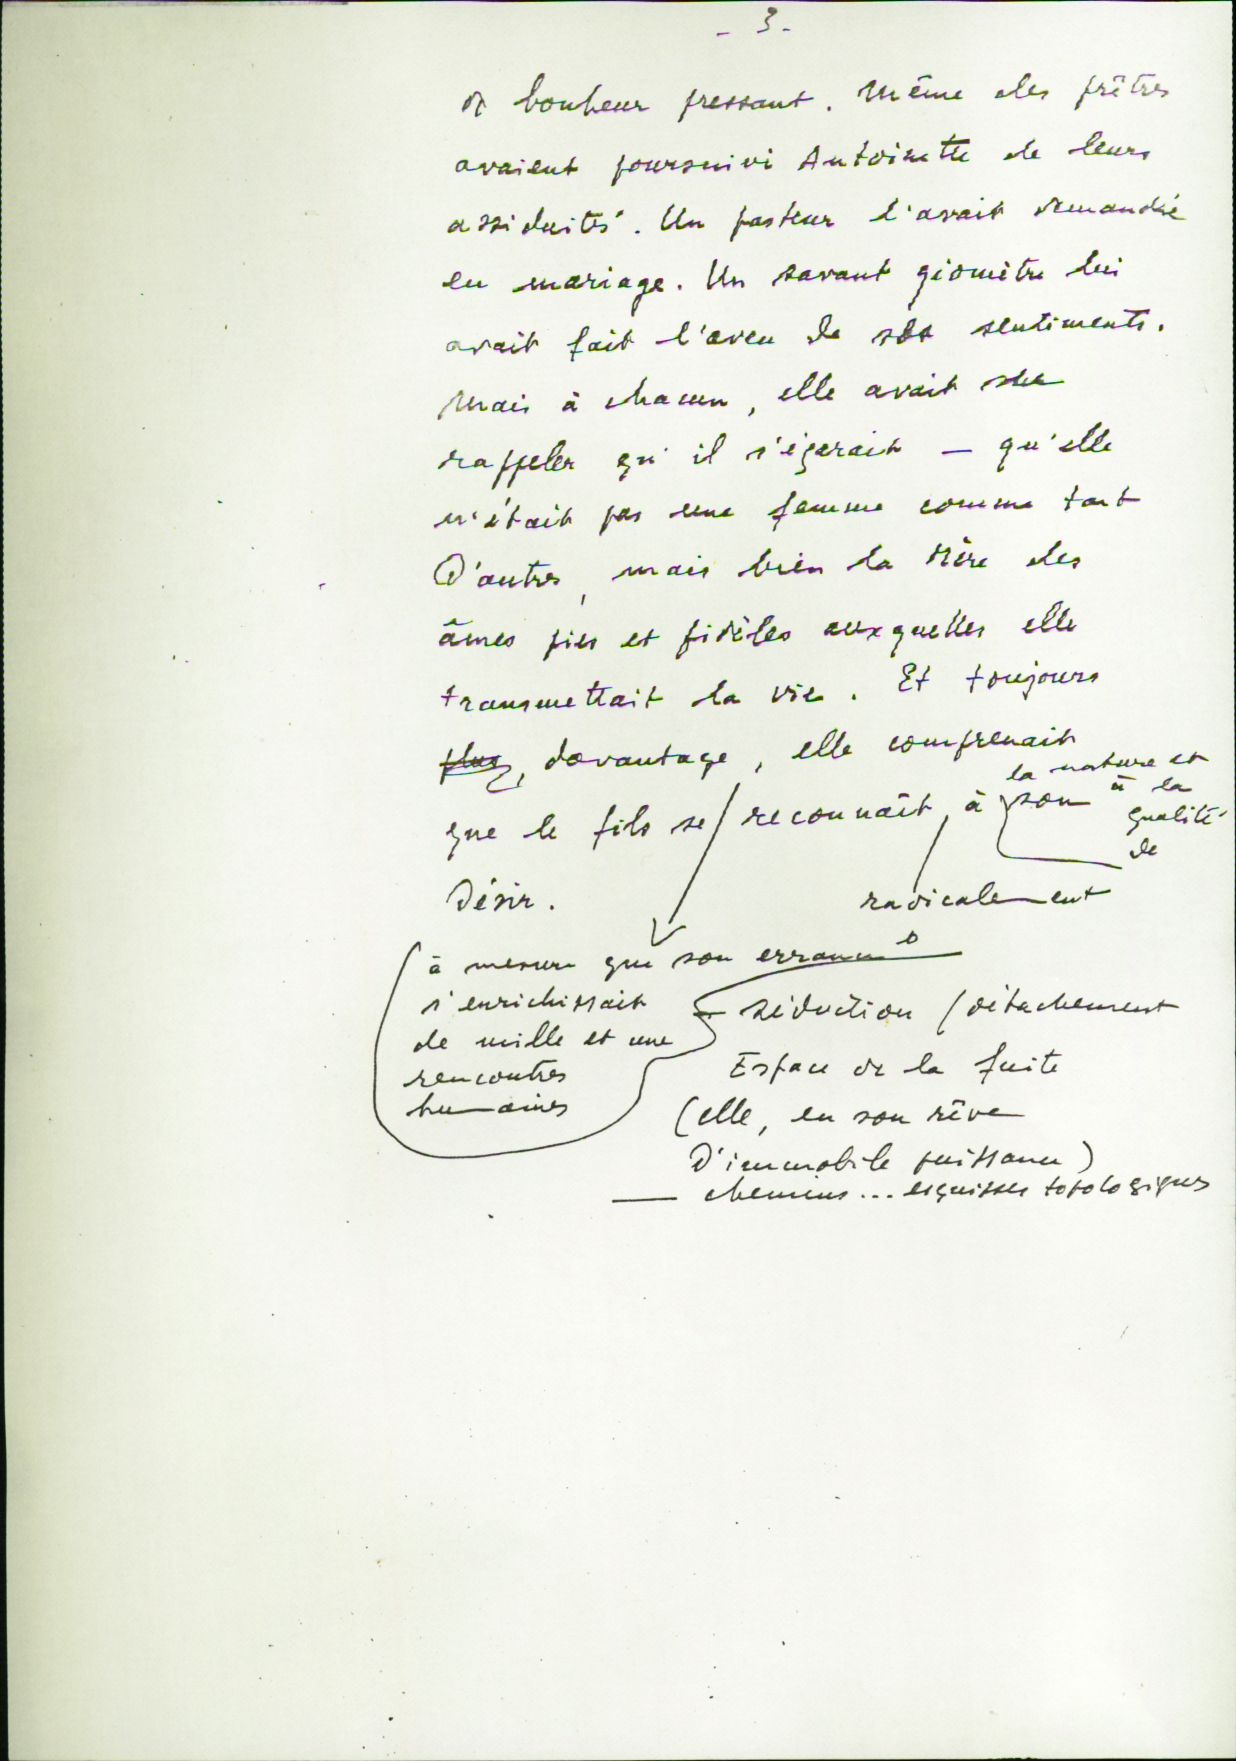 - 3 -
de bonheur pressant. Même des prêtres
avaient poursuivi Antoinette de leurs
assiduités. Un pasteur l'avait demandée
en mariage. Un savant géomètre lui
avait fait l'aveu de ses sentiments.
Mais à chacun, elle avait su
rappeler qu'il s'égarait — qu'elle
n'était pas une femme comme tant
d'autres, mais bien la Mère des
âmes pies et fidèles auxquelles elle
transmettait la vie. Et toujours
plus, davantage, elle comprenait
la nature et
que le fils se reconnaît, à son à la
qualité
de
Désir. radicalement
à mesure que son errance
s'enrichissait séduction / détachement
de mille et une
rencontres Espace de la fuite
humaines (elle, en son rêve
d'immobile puissance)
— chemins... esquisses topologiques